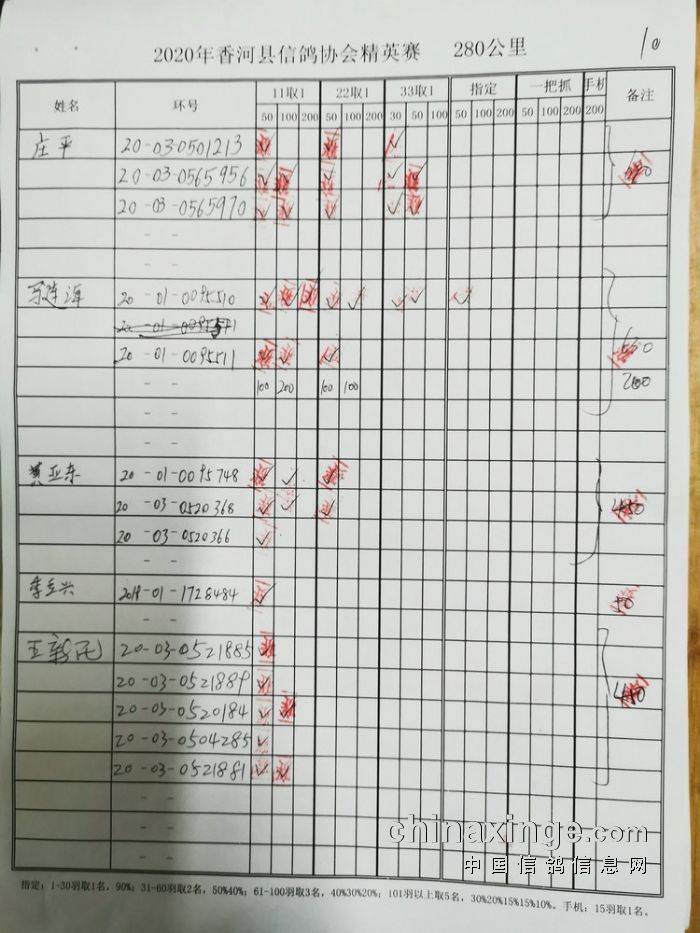 2020年香河县信鸽协会精英赛 280公里
10
姓名 环号 11取1 22取1 33取1 指定 一把抓 手机 备注
50 100 200 50 100 200 30 50 100 50 100 200 50 100 200 200
庄平 20-03-0501213
20-03-0565956
20-03-0565970
20-01-0095510
20-01-0095511
100 200 100 100
200
黄亚东 20-01-0095748
20-03-0520368
20-03-0520366
2018-01-1728484 50
20-03-0521885
20-03-0521889
20-03-0520184
20-03-0504285
20-03-0521881
chinaxinge.com
中国信鸽信息网
指定：1-30羽取1名，90%；31-60羽取2名，50%40%；61-100羽取3名，40%30%20%；101羽以上取5名，30%20%15%15%10%。手机：15羽取1名。